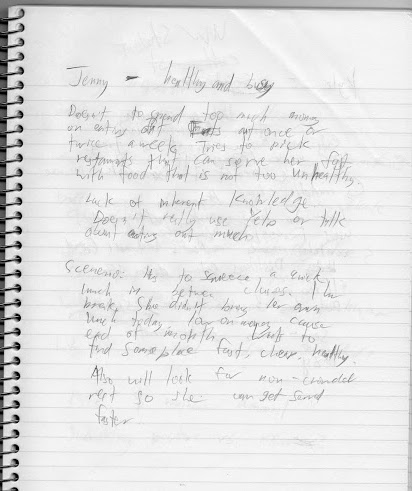 Jenny - healthy and busy
Doesn't to spend too much money
on eating out Eats out once or
twice a week Tries to pick
restaurants that can serve her fast
with food that is not too unhealthy.
Lack of internet knowledge
Doesn't really use Yelp or talk
about eating out much
Scenerio: Has to squeeze a quick
lunch in between classes.
break. She didn't bring her own
lunch today. low on money cause
end of month. Want to
find someplace fast, cheap, healthy.
Also will look for non-crowded
rest so she can get served
faster.